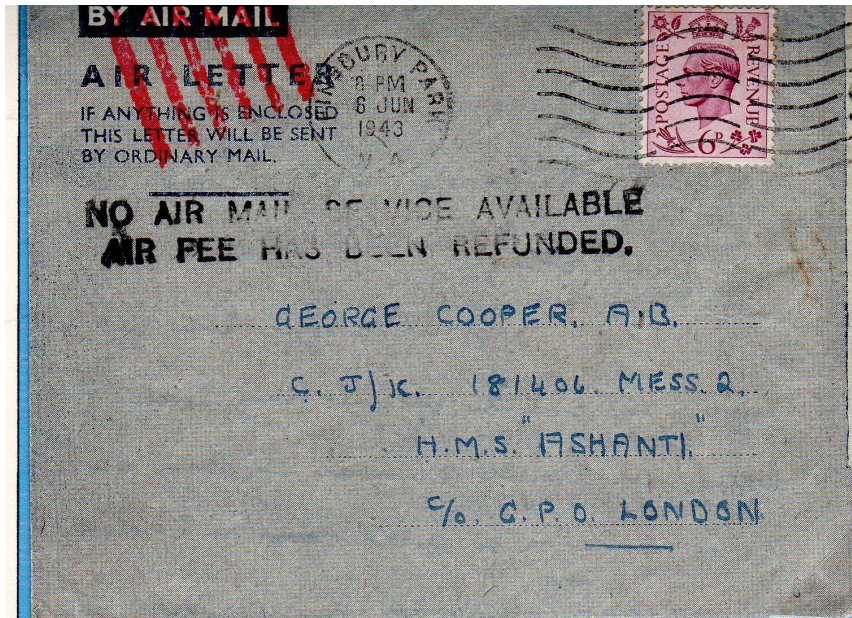 BY AIR MAIL
AIR LETTER
IF ANYTHING IS ENCLOSED
THIS LETTER WILL BE SENT
BY ORDINARY MAIL.
PARK
8 PM
6 JUN
1943
POSTAGE REVENUE
6D
NO AIR MAIL SERVICE AVAILABLE
AIR FEE HAS BEEN REFUNDED.
GEORGE COOPER, A.B.
C. J/K. 181406. MESS. 2.
H.M.S. "ASHANTI."
C/O. G.P.O. LONDON